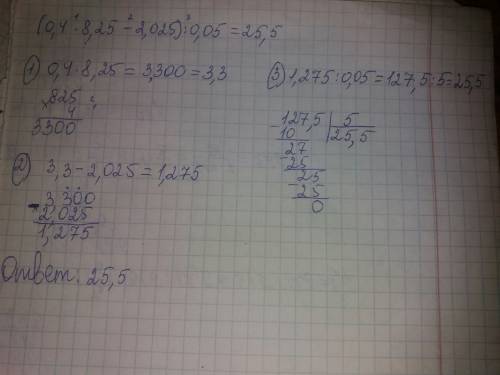 (0,4 · 8,25 - 2,025) : 0,05 = 25,5
1) 0,4 · 8,25 = 3,300 = 3,3
×825
4
3300
2) 3,3 - 2,025 = 1,275
-3,300
2,025
1,275
3) 1,275 : 0,05 = 127,5 : 5 = 25,5
-127,5 | 5
10 | 25,5
-27
25
-25
25
0
Ответ: 25,5